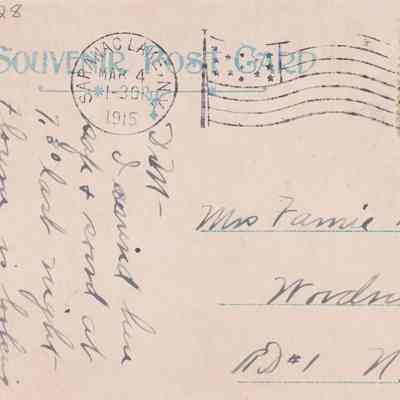 28
SOUVENIR POST CARD
SARANAC LAKE, N.Y.
MAR 4
1-30P
1915
D M-
I arrived here
safe & sound at
7.30 last night
town is looking
Mrs Fannie
Woodr
RD#1 N